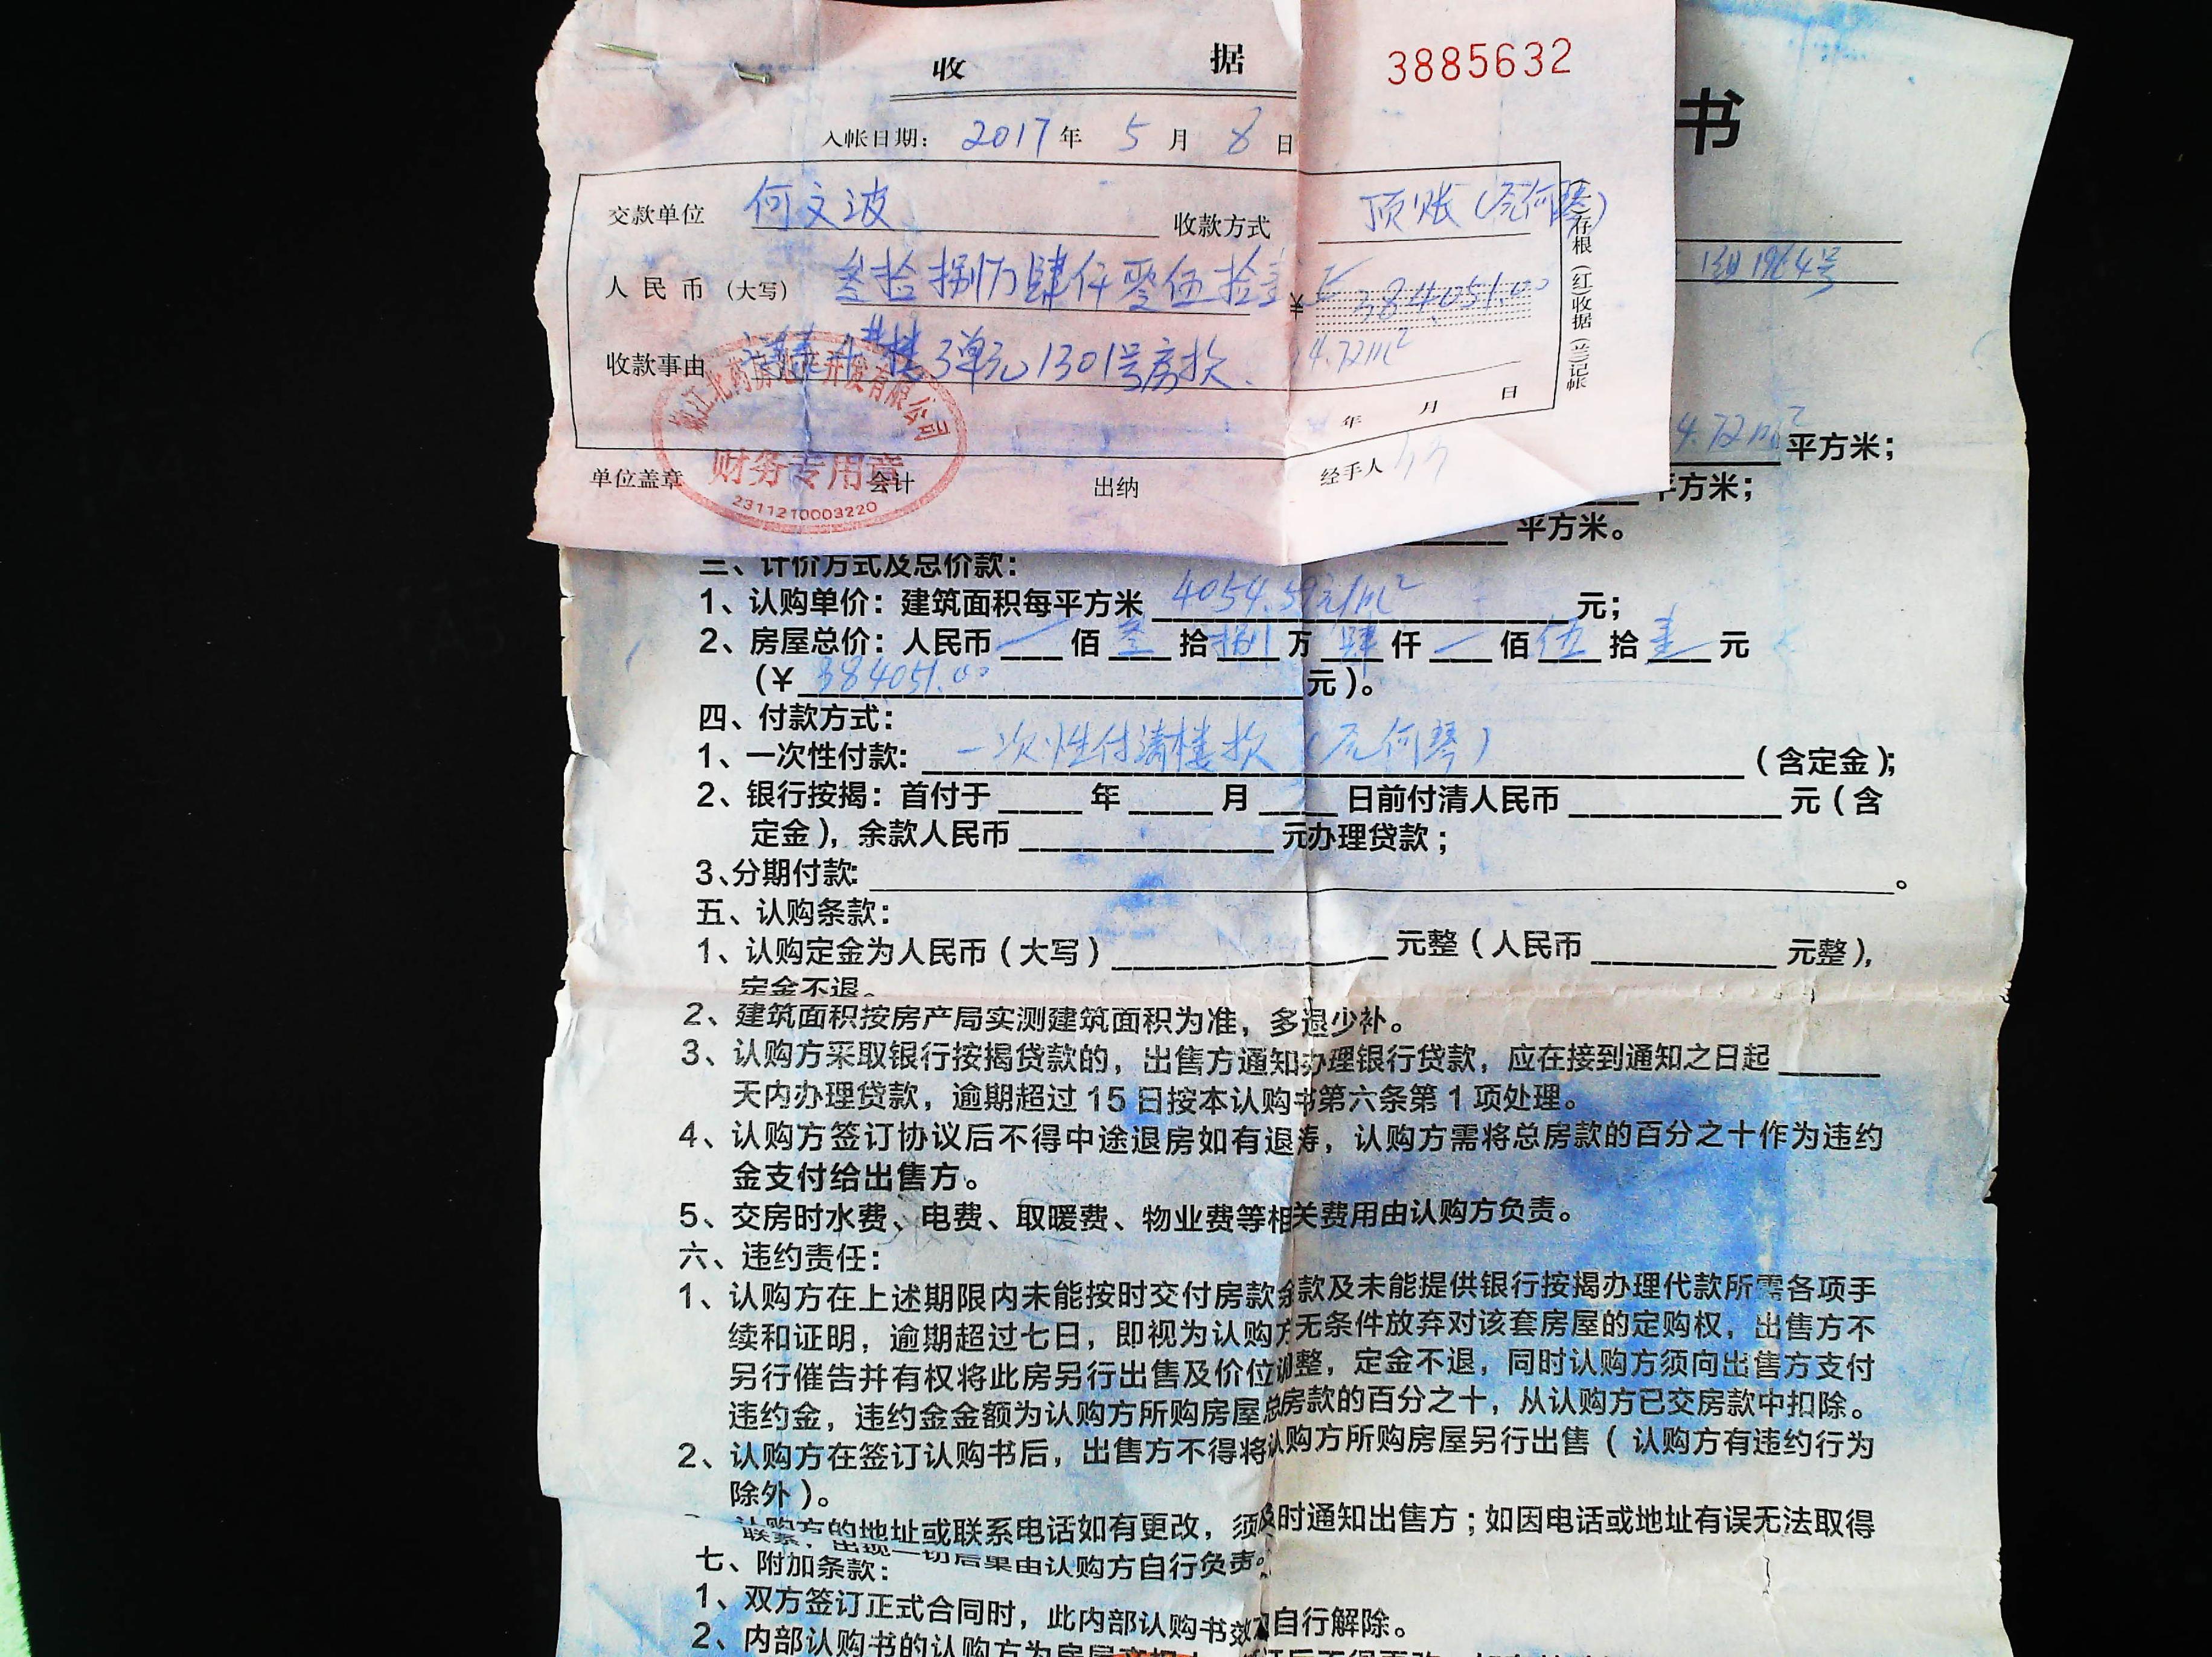 收 据 3885632
入帐日期: 2017 年 5 月 8 日
交款单位 何文波 收款方式 顶账(元何琴)
人民币 (大写) 叁拾捌万肆仟零伍拾壹元 ¥ 384051.00
收款事由 3单元1301号房款. 4.72m²
年 月 日
单位盖章 会计 出纳 经手人
存根(红)收据(兰)记帐
北药房地产开发有限公司
财务专用章
2311210003220
书
1964号
4.72m² 平方米;
平方米;
平方米。
三、计价方式及总价款:
1、认购单价: 建筑面积每平方米 4054.59元/m² 元;
2、房屋总价: 人民币 一 佰 叁 拾 捌 万 肆 仟 一 佰 伍 拾 壹 元
(¥ 384051.00 元)。
四、付款方式:
1、一次性付款: 一次性付清楼款(元何琴) (含定金);
2、银行按揭: 首付于 年 月 日前付清人民币 元(含
定金),余款人民币 元办理贷款;
3、分期付款: 。
五、认购条款:
1、认购定金为人民币(大写) 元整(人民币 元整),
定金不退。
2、建筑面积按房产局实测建筑面积为准,多退少补。
3、认购方采取银行按揭贷款的,出售方通知办理银行贷款,应在接到通知之日起
天内办理贷款,逾期超过15日按本认购书第六条第1项处理。
4、认购方签订协议后不得中途退房如有退涛,认购方需将总房款的百分之十作为违约
金支付给出售方。
5、交房时水费、电费、取暖费、物业费等相关费用由认购方负责。
六、违约责任:
1、认购方在上述期限内未能按时交付房款余款及未能提供银行按揭办理代款所需各项手
续和证明,逾期超过七日,即视为认购方无条件放弃对该套房屋的定购权,出售方不
另行催告并有权将此房另行出售及价位调整,定金不退,同时认购方须向出售方支付
违约金,违约金金额为认购方所购房屋总房款的百分之十,从认购方已交房款中扣除。
2、认购方在签订认购书后,出售方不得将认购方所购房屋另行出售(认购方有违约行为
除外)。
认购方的地址或联系电话如有更改,须及时通知出售方;如因电话或地址有误无法取得
联系,出现一切后果由认购方自行负责。
七、附加条款:
1、双方签订正式合同时,此内部认购书效力自行解除。
2、内部认购书的认购方为房屋